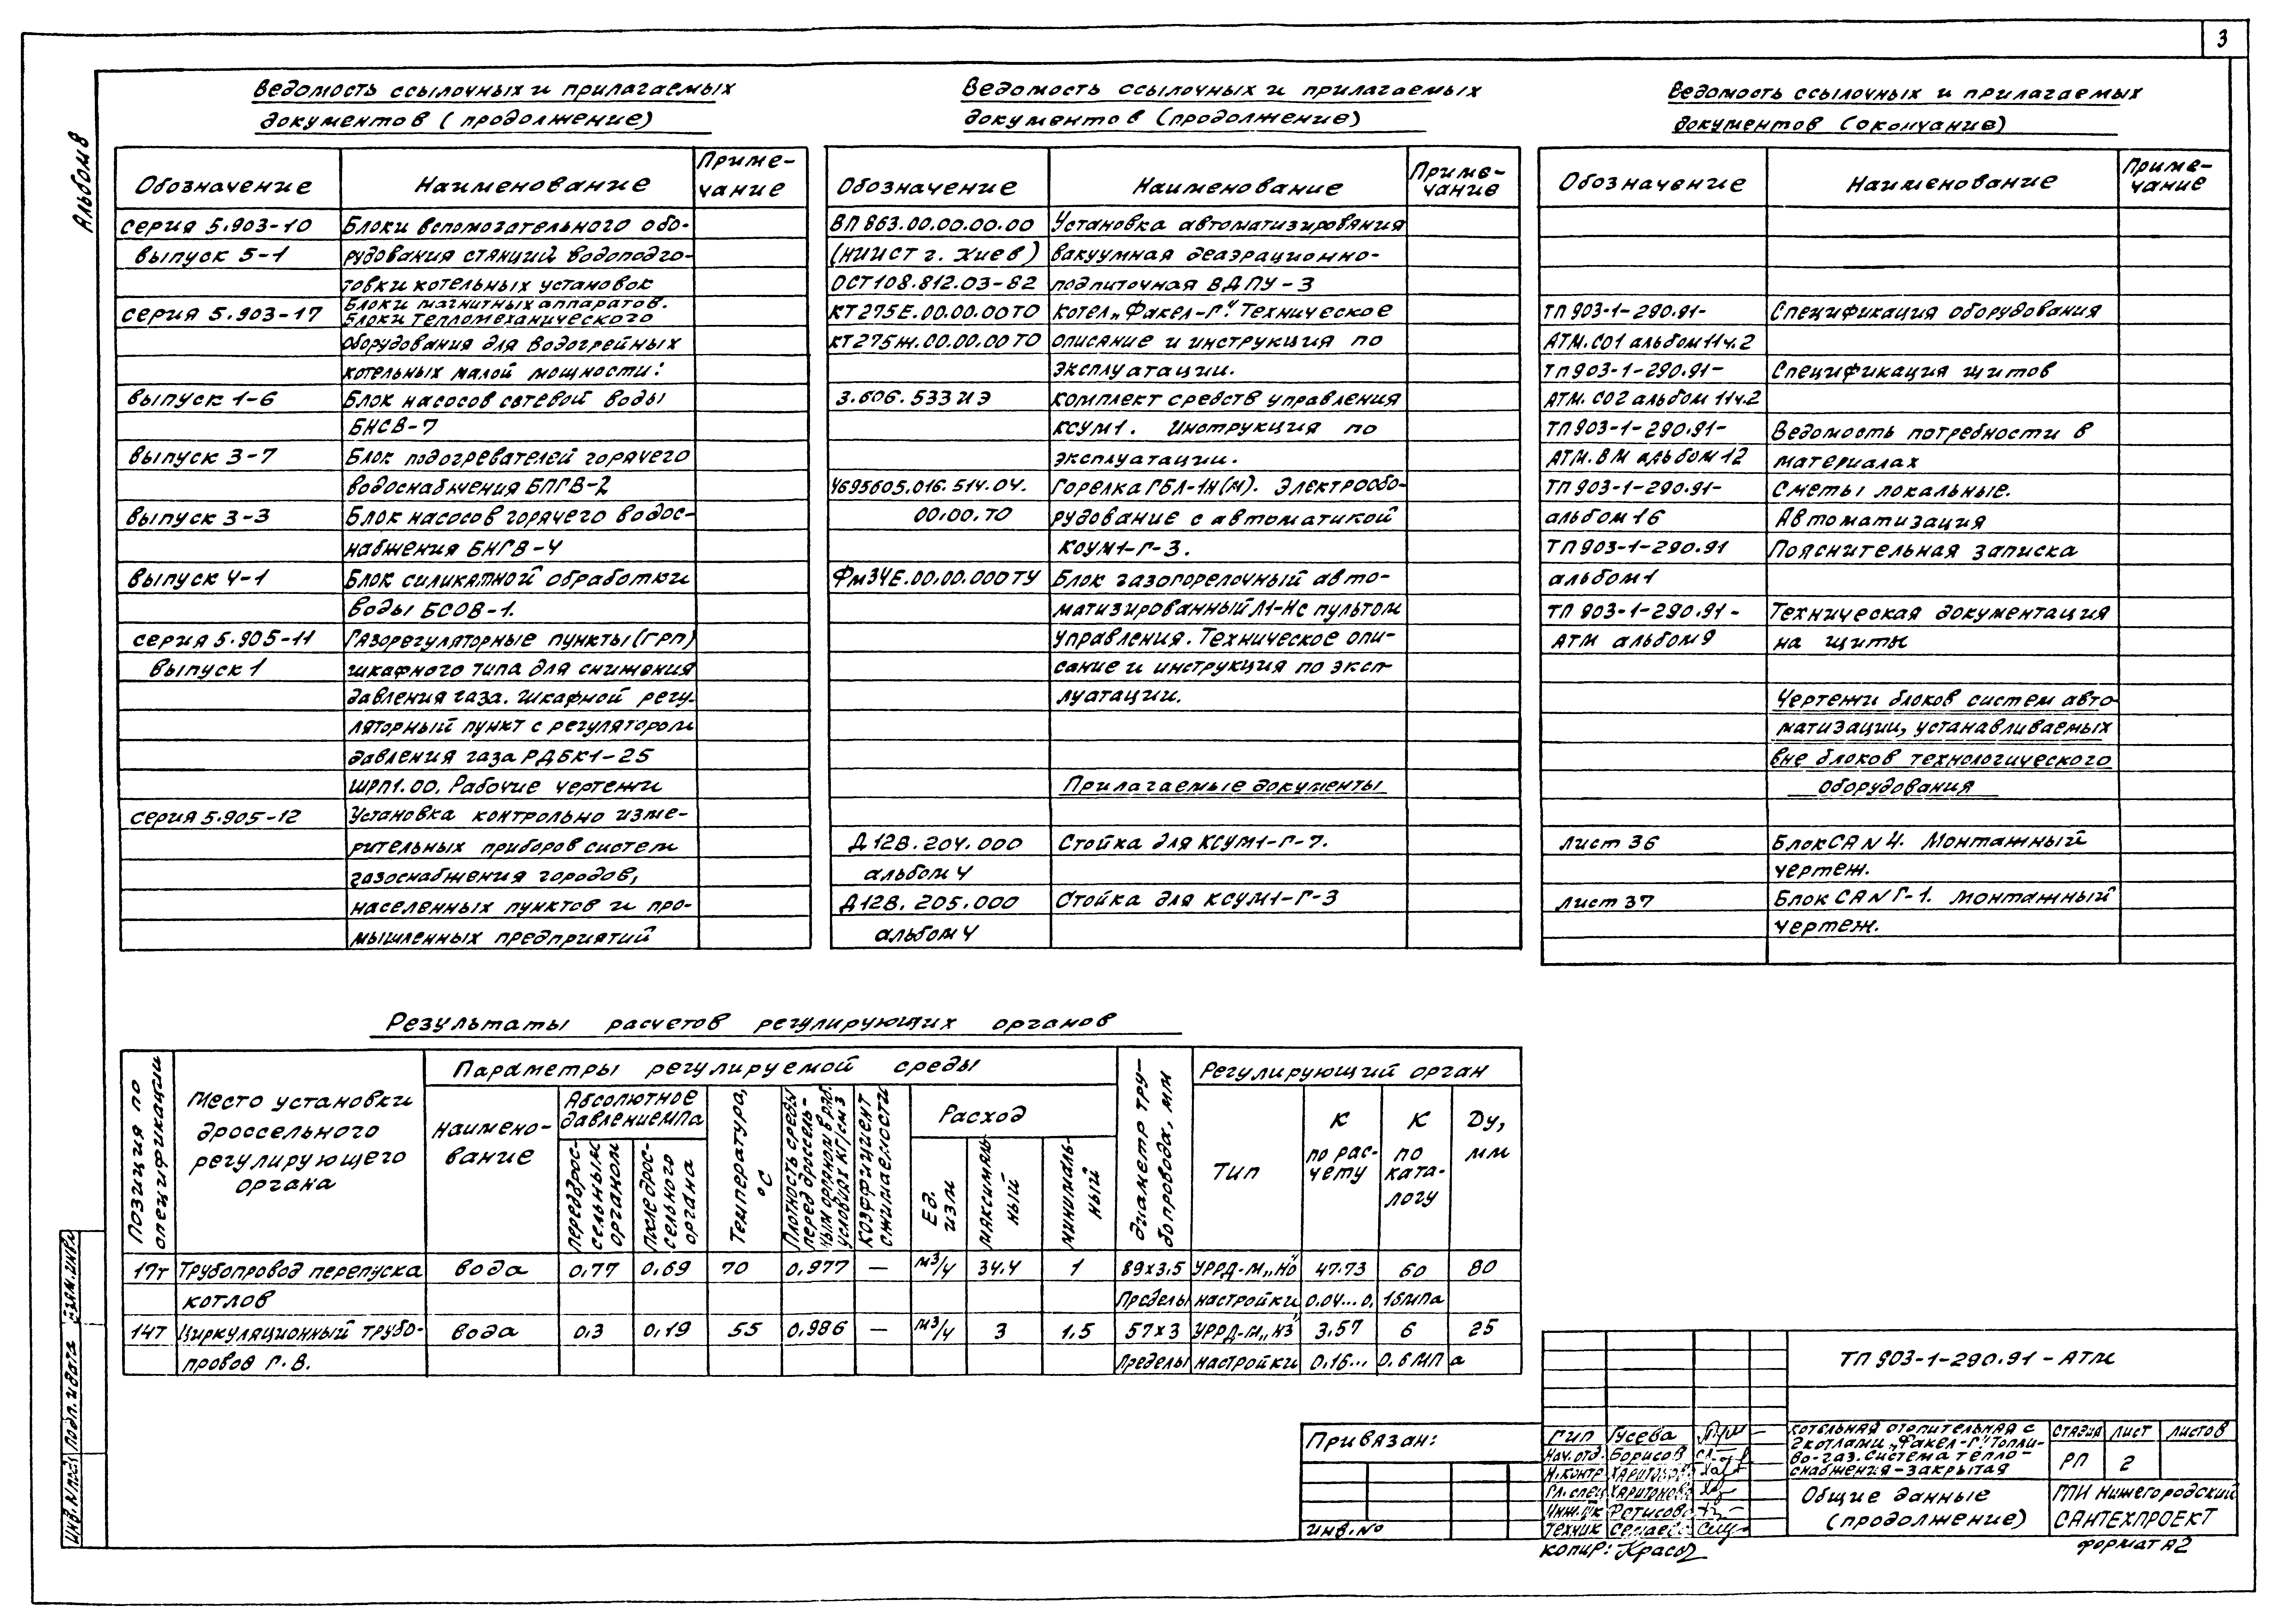 3
Альбом 8
Ведомость ссылочных и прилагаемых
документов (продолжение)
Обозначение Наименование Приме-
чание
серия 5.903-10 Блоки вспомогательного обо-
выпуск 5-1 рудования станций водоподго-
товки котельных установок
Блоки магнитных аппаратов.
серия 5.903-17 Блоки тепломеханического
оборудования для водогрейных
котельных малой мощности:
выпуск 1-6 Блок насосов сетевой воды
БНСВ-7
выпуск 3-7 Блок подогревателей горячего
водоснабжения БПГВ-2
выпуск 3-3 Блок насосов горячего водос-
набжения БНГВ-4
выпуск 4-1 Блок силикатной обработки
воды БСОВ-1.
серия 5.905-11 Газорегуляторные пункты (ГРП)
выпуск 1 шкафного типа для снижения
давления газа. Шкафной регу-
ляторный пункт с регулятором
давления газа РДБК1-25
ШРП1.00. Рабочие чертежи
серия 5.905-12 Установка контрольно изме-
рительных приборов систем
газоснабжения городов,
населенных пунктов и про-
мышленных предприятий
Ведомость ссылочных и прилагаемых
документов (продолжение)
Обозначение Наименование Приме-
чание
ВП 863.00.00.00.00 Установка автоматизированная
(НИИСТ г. Киев) вакуумная деаэрационно-
ОСТ108.812.03-82 подпиточная ВДПУ-3
КТ275Е.00.00.00ТО Котел „Факел-Г". Техническое
КТ275Ж.00.00.00ТО описание и инструкция по
эксплуатации.
3.606.533ИЭ Комплект средств управления
КСУМ1. Инструкция по
эксплуатации.
4695605.016.514.04. Горелка ГБЛ-1Н(М). Электрообо-
00.00.ТО рудование с автоматикой
КСУМ1-Г-3.
ФМ34Е.00.00.000ТУ Блок газогорелочный авто-
матизированный Л1-Нс пультом
управления. Техническое опи-
сание и инструкция по эксп-
луатации.
Прилагаемые документы
Д128.204.000 Стойка для КСУМ1-Г-7.
альбом 4
Д128.205.000 Стойка для КСУМ1-Г-3
альбом 4
Ведомость ссылочных и прилагаемых
документов (окончание)
Обозначение Наименование Приме-
чание
ТП 903-1-290.91- Спецификация оборудования
АТМ.СО1 альбом 11ч.2
ТП 903-1-290.91- Спецификация щитов
АТМ.СО2 альбом 11ч.2
ТП 903-1-290.91- Ведомость потребности в
АТМ.ВМ альбом 12 материалах
ТП 903-1-290.91- Сметы локальные.
альбом 16 Автоматизация
ТП 903-1-290.91 Пояснительная записка
альбом 1
ТП 903-1-290.91- Техническая документация
АТМ альбом 9 на щиты
Чертежи блоков систем авто-
матизации, устанавливаемых
вне блоков технологического
оборудования
Лист 36 Блок САN 4. Монтажный
чертеж.
Лист 37 Блок САN Г-1. Монтажный
чертеж.
Результаты расчетов регулирующих органов
Позиция по спецификации
Место установки
дроссельного
регулирующего
органа
Параметры регулируемой среды
Наимено-
вание
Абсолютное
давление МПа
перед дрос-
сельным
органом
после дрос-
сельного
органа
Температура,
°С
Плотность среды
перед дроссель-
ным органом в раб.
условиях кг/см3
Коэффициент
сжимаемости
Расход
Ед.
изм
максималь-
ный
минималь-
ный
диаметр тру-
бопровода, мм
Регулирующий орган
Тип
К
по рас-
чету
К
по
ката-
логу
Ду,
мм
17т Трубопровод перепуска вода 0,77 0,69 70 0,977 — м³/ч 34.4 1 89х3.5 УРРД-М „НО" 47.73 60 80
котлов Пределы настройки 0.04...0,16МПа
14т Циркуляционный трубо- вода 0,3 0,19 55 0,986 — м³/ч 3 1.5 57х3 УРРД-М „НЗ" 3,57 6 25
провод Г.В. Пределы настройки 0.16... 0.6МПа
Привязан:
Инв.№
ТП 903-1-290.91-АТМ
ГИП Гусева
Нач.отд. Борисов
Н.контр Харитонова
Гл.спец Харитонова
Техник
Копир:
Котельная отопительная с
2 котлами „Факел-Г". Топли-
во-газ. Система тепло-
снабжения-закрытая
Стадия Лист Листов
РП 2
Общие данные
(продолжение)
ГПИ Нижегородский
САНТЕХПРОЕКТ
Формат А2
Инв.№подл Подп. и дата Взам.инв.№